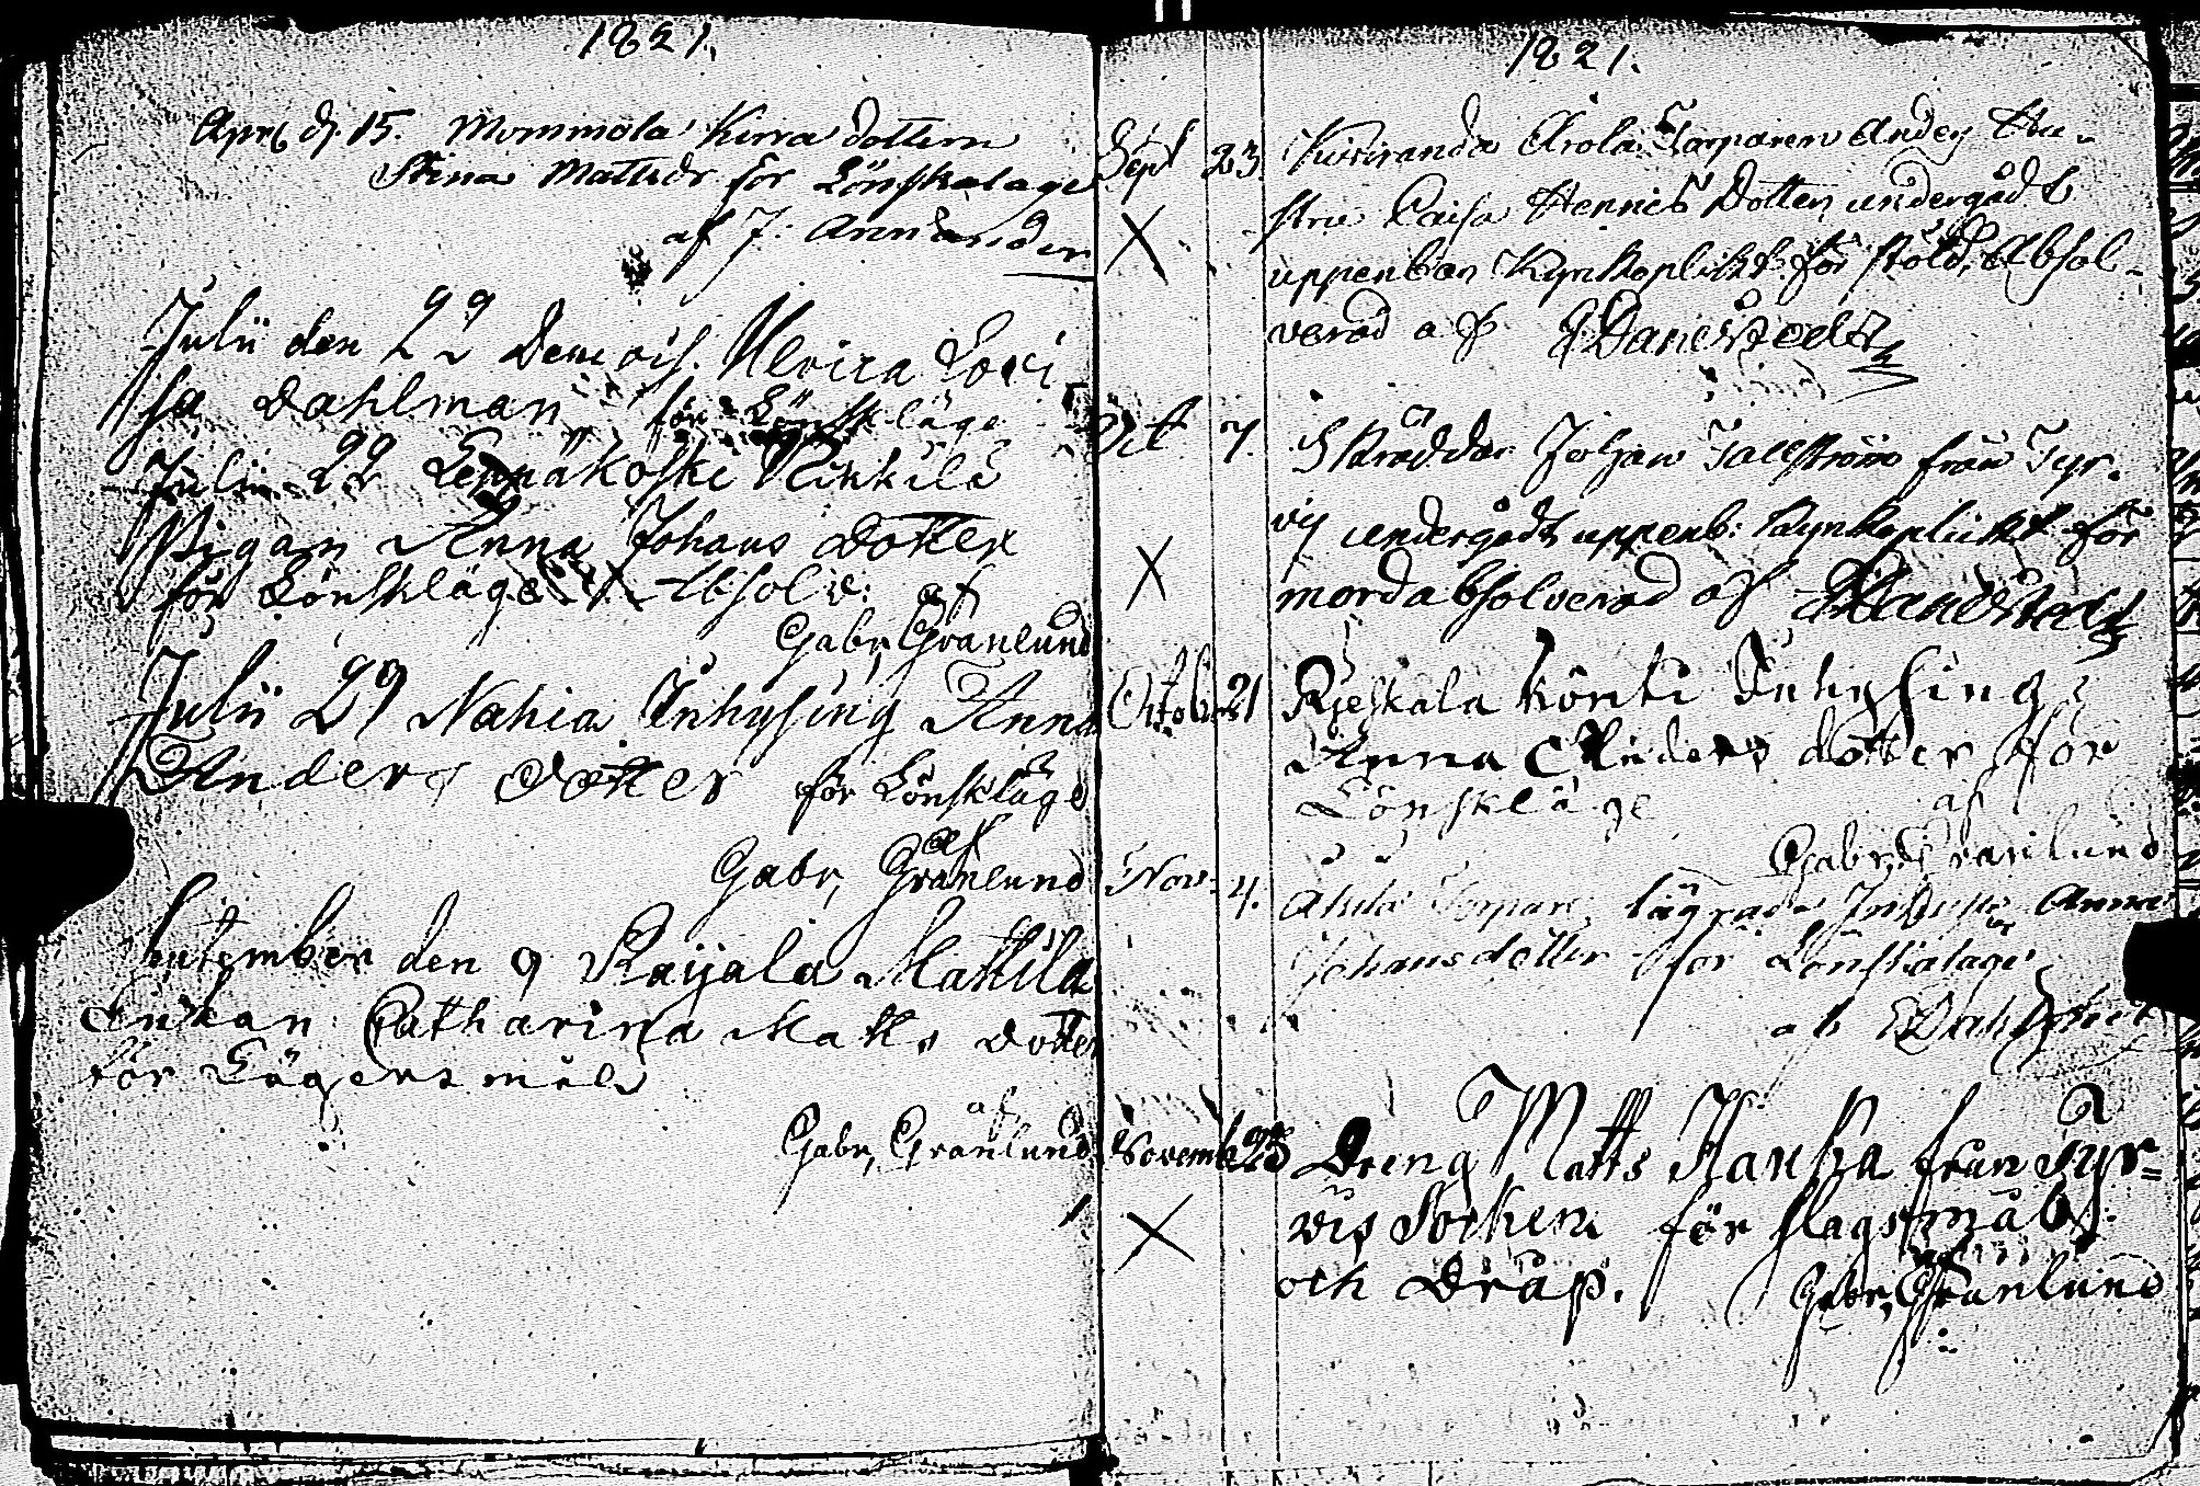 1821.
Apr. d. 15. Mommola Kirra dottern
Stina Mattsdr för Lönskalage
af J: Arenander
Julii den 22 Demois. Ulrica Lovi
sa Dahlman för Lönskläge
Julii 22 Leppäkoski Nikkilä
Pigan Anna Johans dotter
för Lönskläge Absolv: af
Gabr, Granlund
Julii 29 Nahia Inhysing Anna
Anders dotter för Lönskläge
af
Gabr, Granlund
September den 9 Raijala Mattila
Enkan Catharina Matts dotter
för Lägersmål
af
Gabr, Granlund
1821.
Sept 23. Arola Torparen Anders Hu-
stru Caisa Henrics Dotter, undergådt
uppenbar Kyrkoplickt för stöld, Absol-
verad af
Oct 7. Skräddar Johan från Tyr-
vis undergådt uppenb: Kyrkoplickt för
mord absolverad af
Octob. 21 Kieskala Kontti Inhysing
Anna Anders dotter för
Lönskläge af
Gabr, Granlund
Nov: 4. lägrade Anna
Johansdotter för Lönskalage
ab
Novemb 25 Dreng Matts Kauka från Tyr=
vis Socken för slagsmål
och Dråp. af
Gabr, Granlund